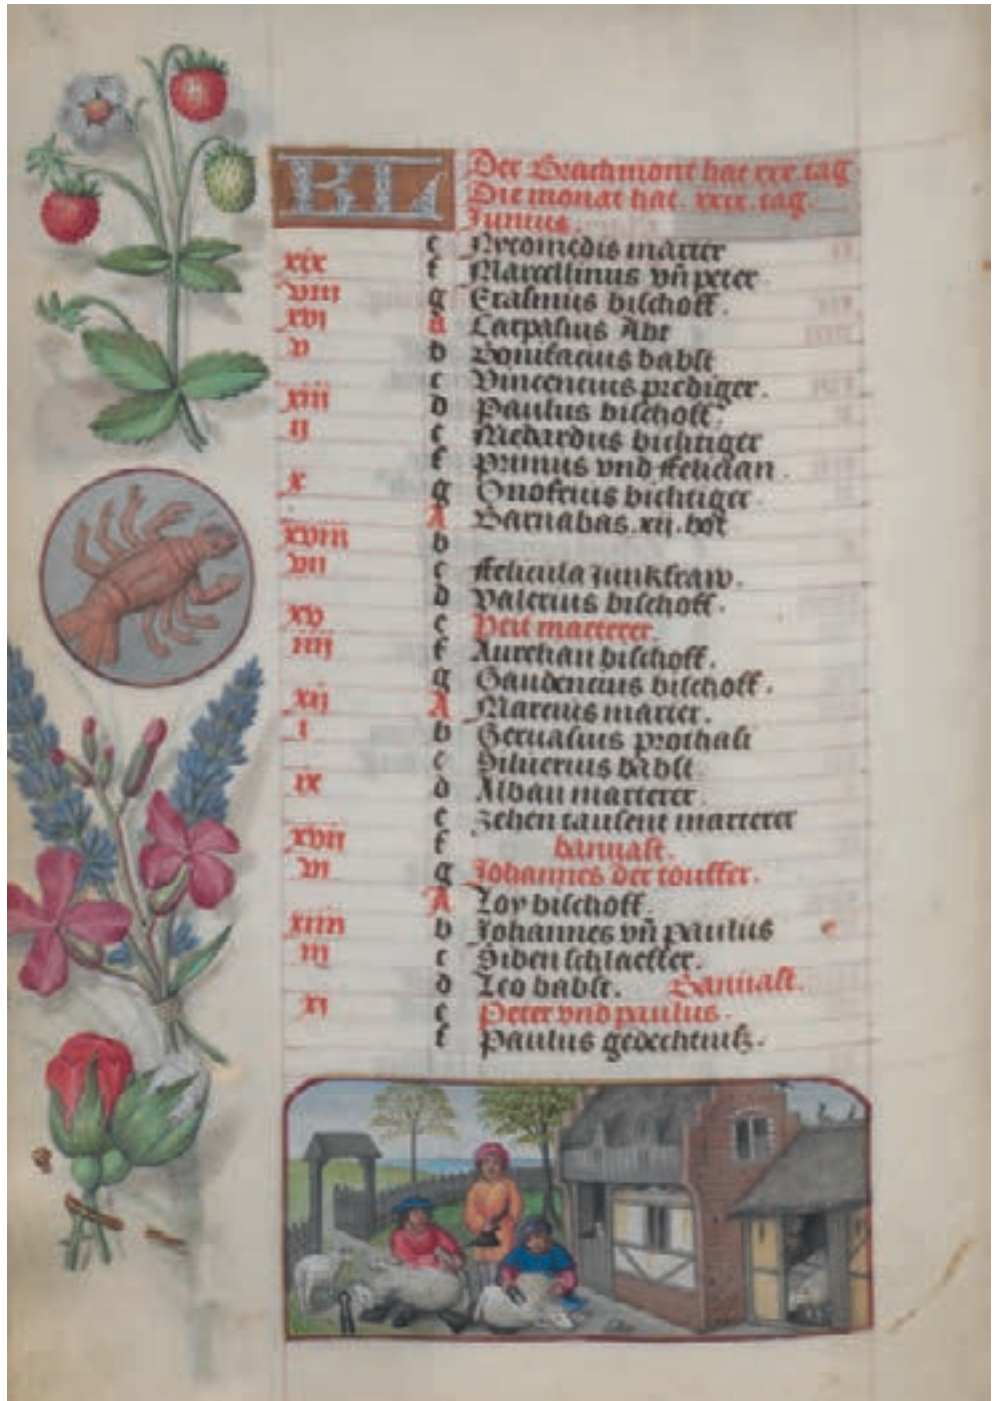 BL
Der Brachmont hat xxx tag
Die monat hat. xxix. tag.
Junius.
e Nycomedis marter
xix f Marcellinus vn̄ peter.
viii g Erasmus bischoff.
xvi A Carpasius Abt
v b Bonifacius babst
c Vincencius prediger.
xiii d Paulus bischoff.
ij e Medardus bichtiger
f Primus vnd Felician.
x g Onofrius bichtiger.
A Barnabas. xij. bot
xviii b
vii c Felicula junkfraw.
d Valerius bischoff.
xv e Veit marterer.
iiij f Aurelian bischoff.
g Gaudencius bischoff.
xij A Marcius marter.
i b Geruasius prothasi
c Siluerius babst.
ix d Alban marterer.
e Zehen tausent marterer
xvii f bannast.
vi g Johannes der touffer.
A Loy bischoff.
xiiii b Johannes vn̄ paulus
iij c Siben schlaeffer.
d Leo babst. Bannast.
xi e Peter vnd paulus.
f Paulus gedechtnis.